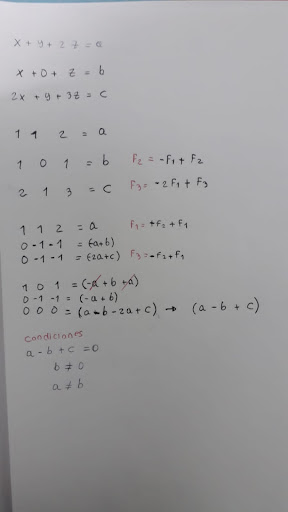 x + y + 2z = a
x + 0 + z = b
2x + y + 3z = c
1 1 2 = a
1 0 1 = b F₂ = -F₁ + F₂
2 1 3 = c F₃ = -2F₁ + F₃
1 1 2 = a F₁ = +F₂ + F₁
0 -1 -1 = (-a+b)
0 -1 -1 = (-2a+c) F₃ = -F₂ + F₁
1 0 1 = (-a + b + a)
0 -1 -1 = (-a + b)
0 0 0 = (a - b - 2a + c) → (a - b + c)
condiciones
a - b + c = 0
b ≠ 0
a ≠ b